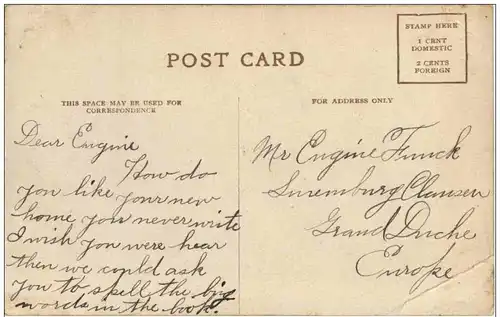 POST CARD
STAMP HERE
1 CENT
DOMESTIC
2 CENTS
FOREIGN
THIS SPACE MAY BE USED FOR
CORRESPONDENCE
FOR ADDRESS ONLY
Dear Eugine
How do
you like your new
home you never write
I wish you were hear
then we could ask
you to spell the big
words in the book.
Mr Eugine Funck
Luxemburg Clausen
Grand Duche
Europe